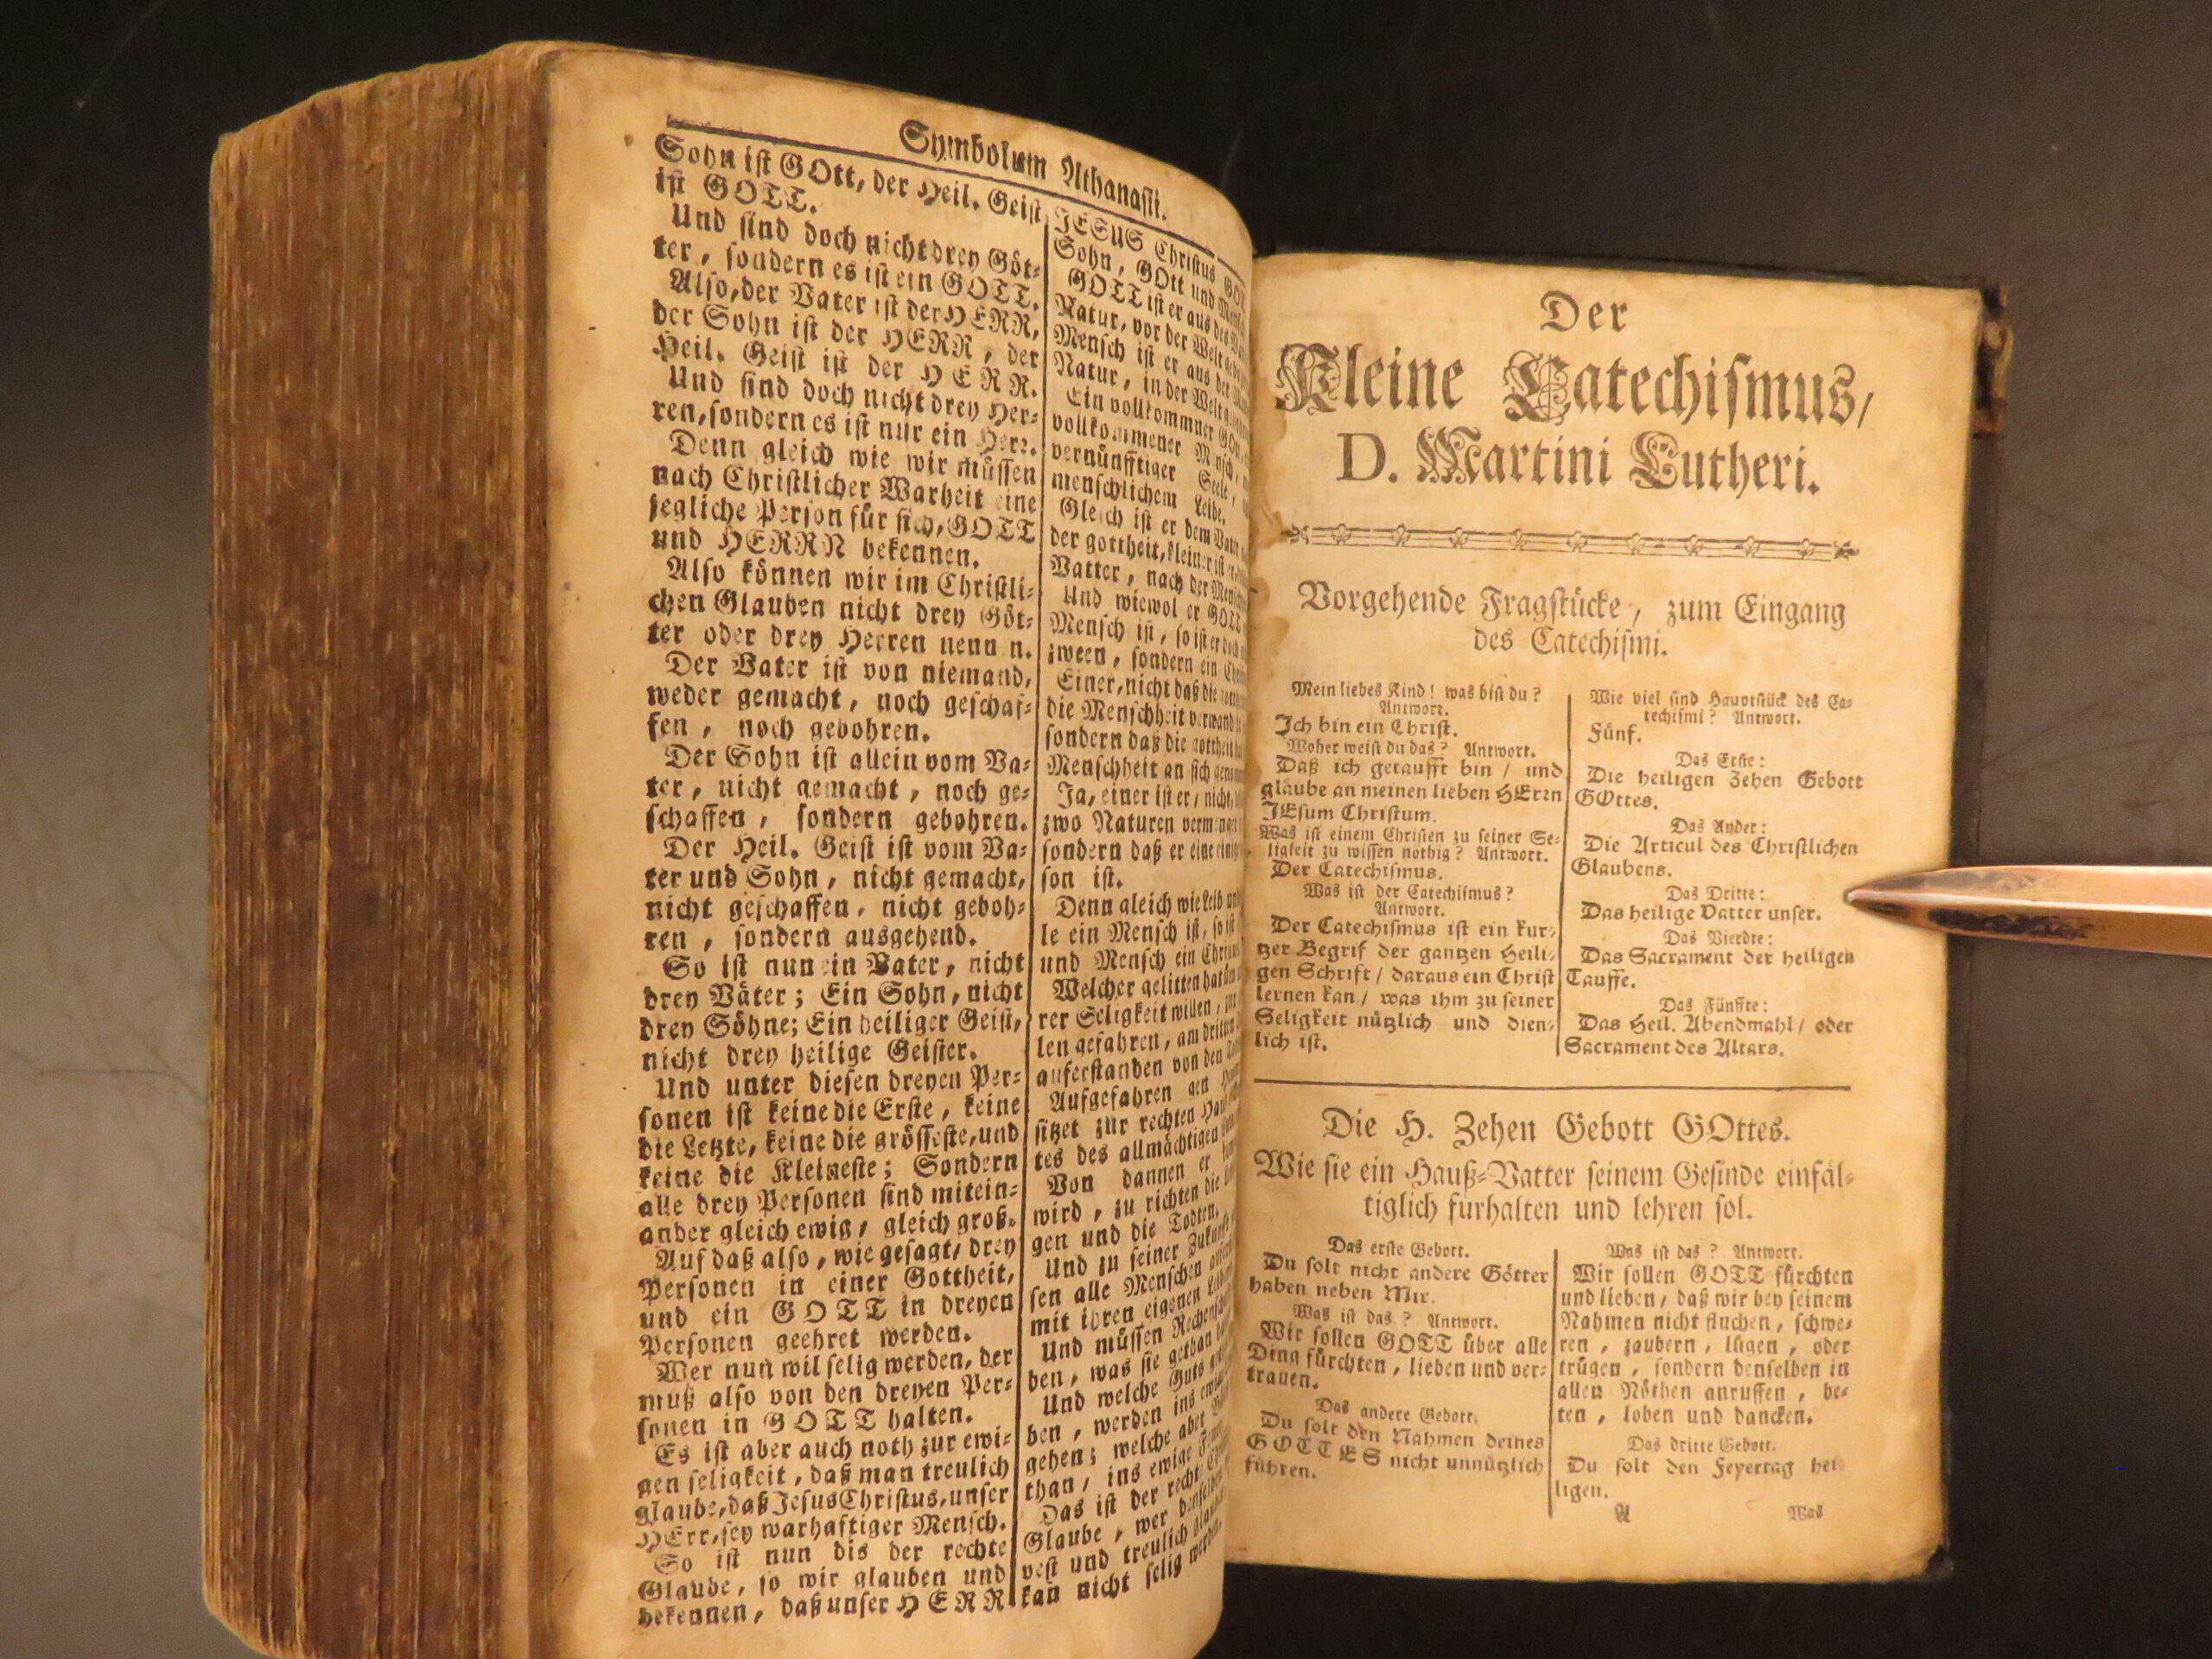 Symbolum Athanasii.
Sohn ist GOtt, der Heil. Geist
ist GOTT.
Und sind doch nicht drey Göt-
ter, sondern es ist ein GOTT.
Also, der Vater ist der HERR,
der Sohn ist der HERR, der
Heil. Geist ist der HERR.
Und sind doch nicht drey Her-
ren, sondern es ist nur ein Herr.
Denn gleich wie wir müssen
nach Christlicher Warheit eine
jegliche Person für sich, GOTT
und HERRN bekennen.
Also können wir im Christli-
chen Glauben nicht drey Göt-
ter oder drey Herren nenn n.
Der Vater ist von niemand,
weder gemacht, noch geschaf-
fen, noch gebohren.
Der Sohn ist allein vom Va-
ter, nicht gemacht, noch ge-
schaffen, sondern gebohren.
Der Heil. Geist ist vom Va-
ter und Sohn, nicht gemacht,
nicht geschaffen, nicht geboh-
ren, sondern ausgehend.
So ist nun ein Vater, nicht
drey Väter; Ein Sohn, nicht
drey Söhne; Ein heiliger Geist,
nicht drey heilige Geister.
Und unter diesen dreyen Per-
sonen ist keine die Erste, keine
die Letzte, keine die grösseste, und
keine die Kleineste; Sondern
alle drey Personen sind mitein-
ander gleich ewig, gleich groß.
Auf daß also, wie gesagt/ drey
Personen in einer Gottheit,
und ein GOTT in dreyen
Personen geehret werden.
Wer nun wil selig werden, der
muß also von den dreyen Per-
sonen in GOTT halten.
Es ist aber auch noth zur ewi-
gen seligkeit, daß man treulich
glaube, daß Jesus Christus, unser
HErr, sey warhaftiger Mensch.
So ist nun dis der rechte
Glaube, so wir glauben und
bekennen, daß unser HERR
JESUS Christus
Sohn, GOtt und
GOTT ist er aus des
Natur, vor der Welt
Mensch ist er aus der
Natur, in der Welt
Ein vollkommner
vollkommener Mensch,
vernünfftiger Seele,
menschlichem Leibe.
Gleich ist er dem Vater
der gottheit, kleiner ist er
Vatter, nach der
Und wiewol er GOTT
Mensch ist, so ist er doch
zween, sondern ein
Einer, nicht daß die
die Menschheit
sondern daß die gottheit
Menschheit an sich
Ja, einer ist er, nicht
zwo Naturen
sondern daß er eine
son ist.
Denn gleich wie Leib und
le ein Mensch ist, so ist
und Mensch ein
Welcher gelitten hat
rer Seligkeit willen,
len gefahren, am dritten
auferstanden von den
Aufgefahren gen
sitzet zur rechten
tes des allmächtigen
Von dannen er
wird, zu richten die
gen und die Todten.
Und zu seiner Zukunft
sen alle Menschen
mit ihren eigenen
Und müssen
ben, was sie gethan
Und welche Guts
ben, werden ins
gehen; welche aber
than, ins ewige
Das ist der recht
Glaube, wer denselben
vest und treulich
kan nicht selig werden.
Der
Kleine Catechismus/
D. Martini Lutheri.
Vorgehende Fragstücke, zum Eingang
des Catechismi.
Mein liebes Kind! was bist du?
Antwort.
Ich bin ein Christ.
Woher weist du das? Antwort.
Daß ich getaufft bin / und
glaube an meinen lieben HErrn
JEsum Christum.
Was ist einem Christen zu seiner Se-
ligkeit zu wissen nöthig? Antwort.
Der Catechismus.
Was ist der Catechismus?
Antwort.
Der Catechismus ist ein kur-
tzer Begrif der gantzen Heili-
gen Schrift / daraus ein Christ
lernen kan / was ihm zu seiner
Seligkeit nützlich und dien-
lich ist.
Wie viel sind Hauptstück des Ca-
techismi? Antwort.
Fünf.
Das Erste:
Die heiligen Zehen Gebott
GOttes.
Das Ander:
Die Articul des Christlichen
Glaubens.
Das Dritte:
Das heilige Vatter unser.
Das Vierdte:
Das Sacrament der heiligen
Tauffe.
Das Fünffte:
Das Heil. Abendmahl / oder
Sacrament des Altars.
Die H. Zehen Gebott GOttes.
Wie sie ein Hauß-Vatter seinem Gesinde einfäl-
tiglich fürhalten und lehren sol.
Das erste Gebott.
Du solt nicht andere Götter
haben neben Mir.
Was ist das? Antwort.
Wir sollen GOTT über alle
Ding fürchten, lieben und ver-
trauen.
Das andere Gebott.
Du solt den Nahmen deines
GOTTES nicht unnützlich
führen.
Was ist das? Antwort.
Wir sollen GOTT fürchten
und lieben / daß wir bey seinem
Nahmen nicht fluchen, schwe-
ren, zaubern, lügen, oder
trügen, sondern denselben in
allen Nöthen anruffen, be-
ten, loben und dancken.
Das dritte Gebott.
Du solt den Feyertag hei-
ligen.
A Was